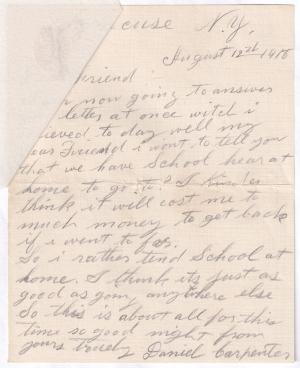 cuse N.Y.
August 12th 1918
friend
now going to answer
letter at once witch i
ieved to day well my
Dear Friend i want to tell you
that we have School hear at
home to go to. I Kinder
think it will cost me to
much money to get back
if i went to
So i rather tend School at
home. I think its just as
good as going anywhere else
So this is about all for this
time so good night from
yours truely Daniel Carpenter